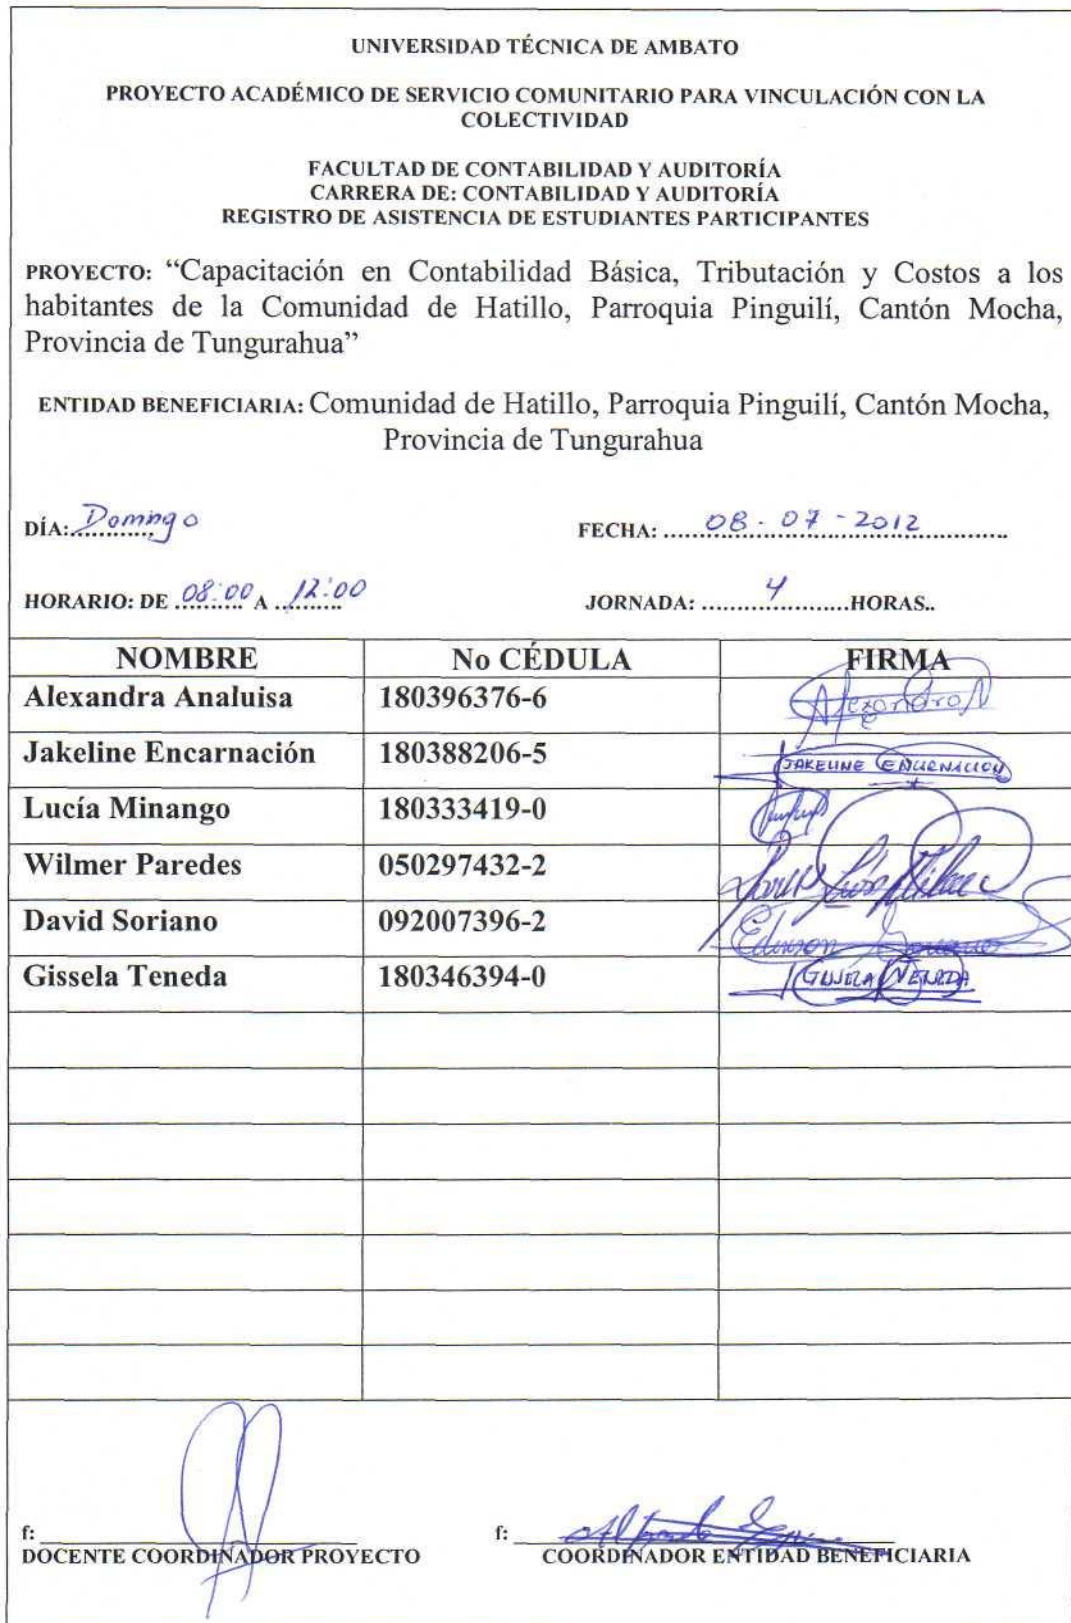 UNIVERSIDAD TÉCNICA DE AMBATO
PROYECTO ACADÉMICO DE SERVICIO COMUNITARIO PARA VINCULACIÓN CON LA
COLECTIVIDAD
FACULTAD DE CONTABILIDAD Y AUDITORÍA
CARRERA DE: CONTABILIDAD Y AUDITORÍA
REGISTRO DE ASISTENCIA DE ESTUDIANTES PARTICIPANTES
PROYECTO: “Capacitación en Contabilidad Básica, Tributación y Costos a los
habitantes de la Comunidad de Hatillo, Parroquia Pinguilí, Cantón Mocha,
Provincia de Tungurahua”
ENTIDAD BENEFICIARIA: Comunidad de Hatillo, Parroquia Pinguilí, Cantón Mocha,
Provincia de Tungurahua
DÍA: Domingo FECHA: 08-07-2012
HORARIO: DE 08:00 A 12:00 JORNADA: 4 HORAS..
NOMBRE No CÉDULA FIRMA
Alexandra Analuisa 180396376-6 Alexandra
Jakeline Encarnación 180388206-5 JAKELINE ENCARNACION
Lucía Minango 180333419-0
Wilmer Paredes 050297432-2
David Soriano 092007396-2 Edinson
Gissela Teneda 180346394-0 GISSELA TENEDA
f: f:
DOCENTE COORDINADOR PROYECTO COORDINADOR ENTIDAD BENEFICIARIA